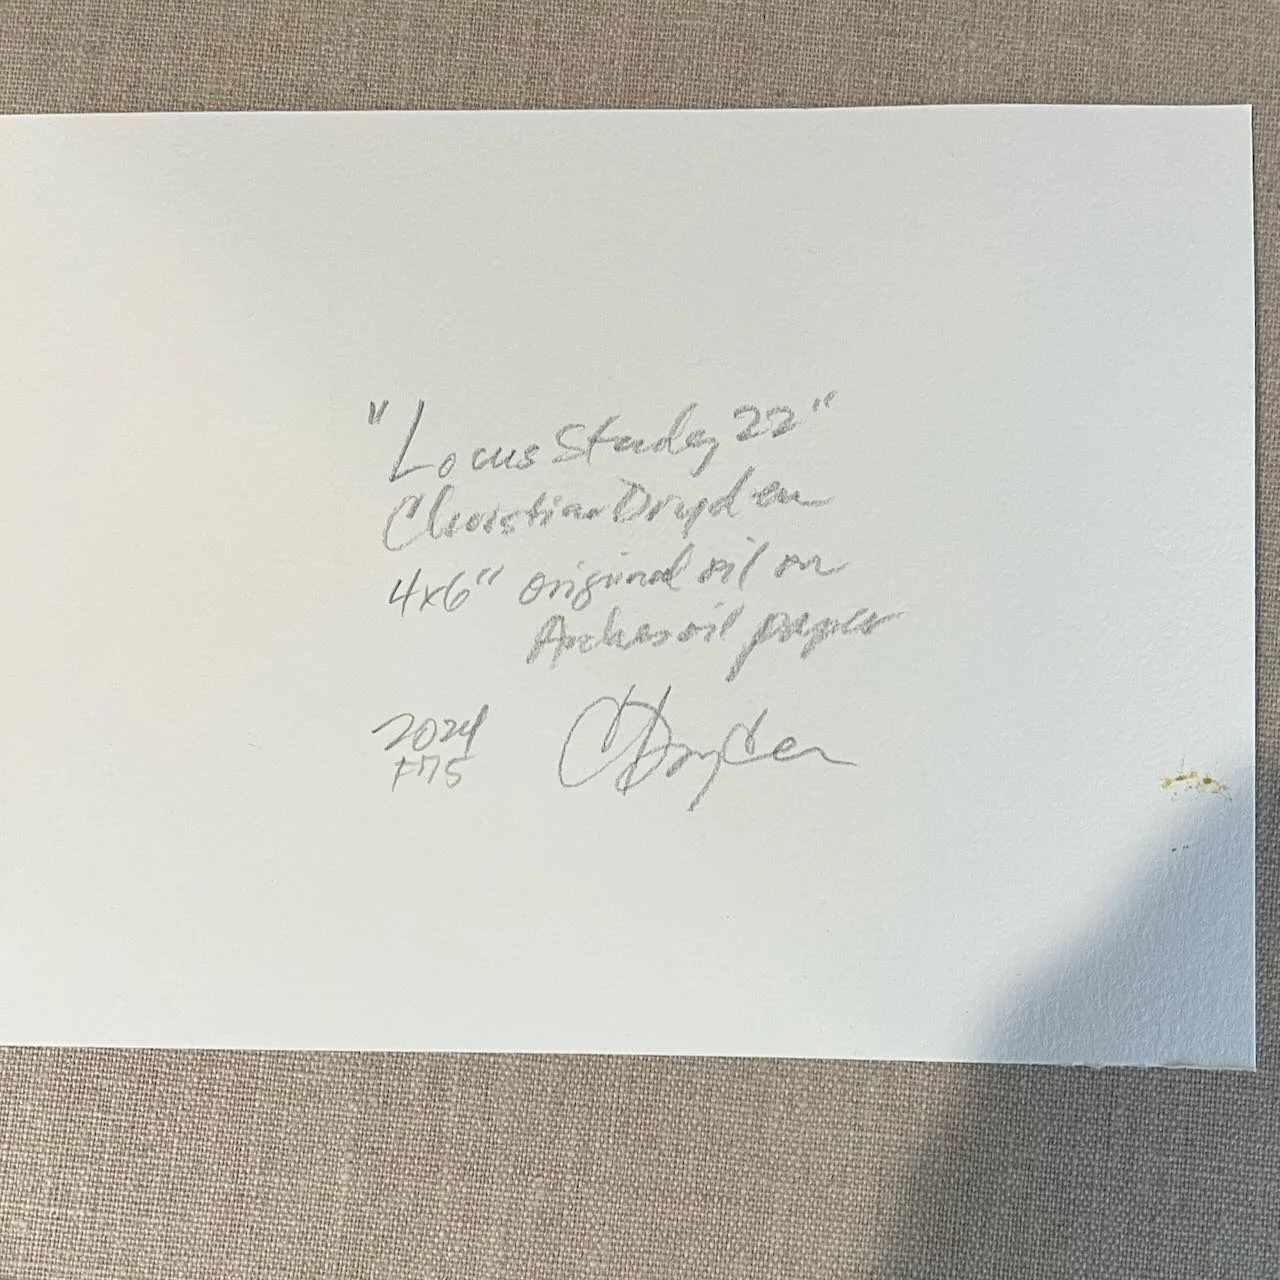 "Locus Study 22"
Christian Dryden
4x6" original oil on
Arches oil paper
2024 CDryden
F75